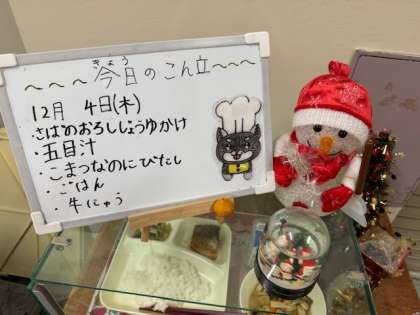 ～～～今日のこん立～～～
きょう
12月 4日(木)
・さばのおろししょうゆかけ
・五目汁
・こまつなのにびたし
・ごはん
・牛にゅう